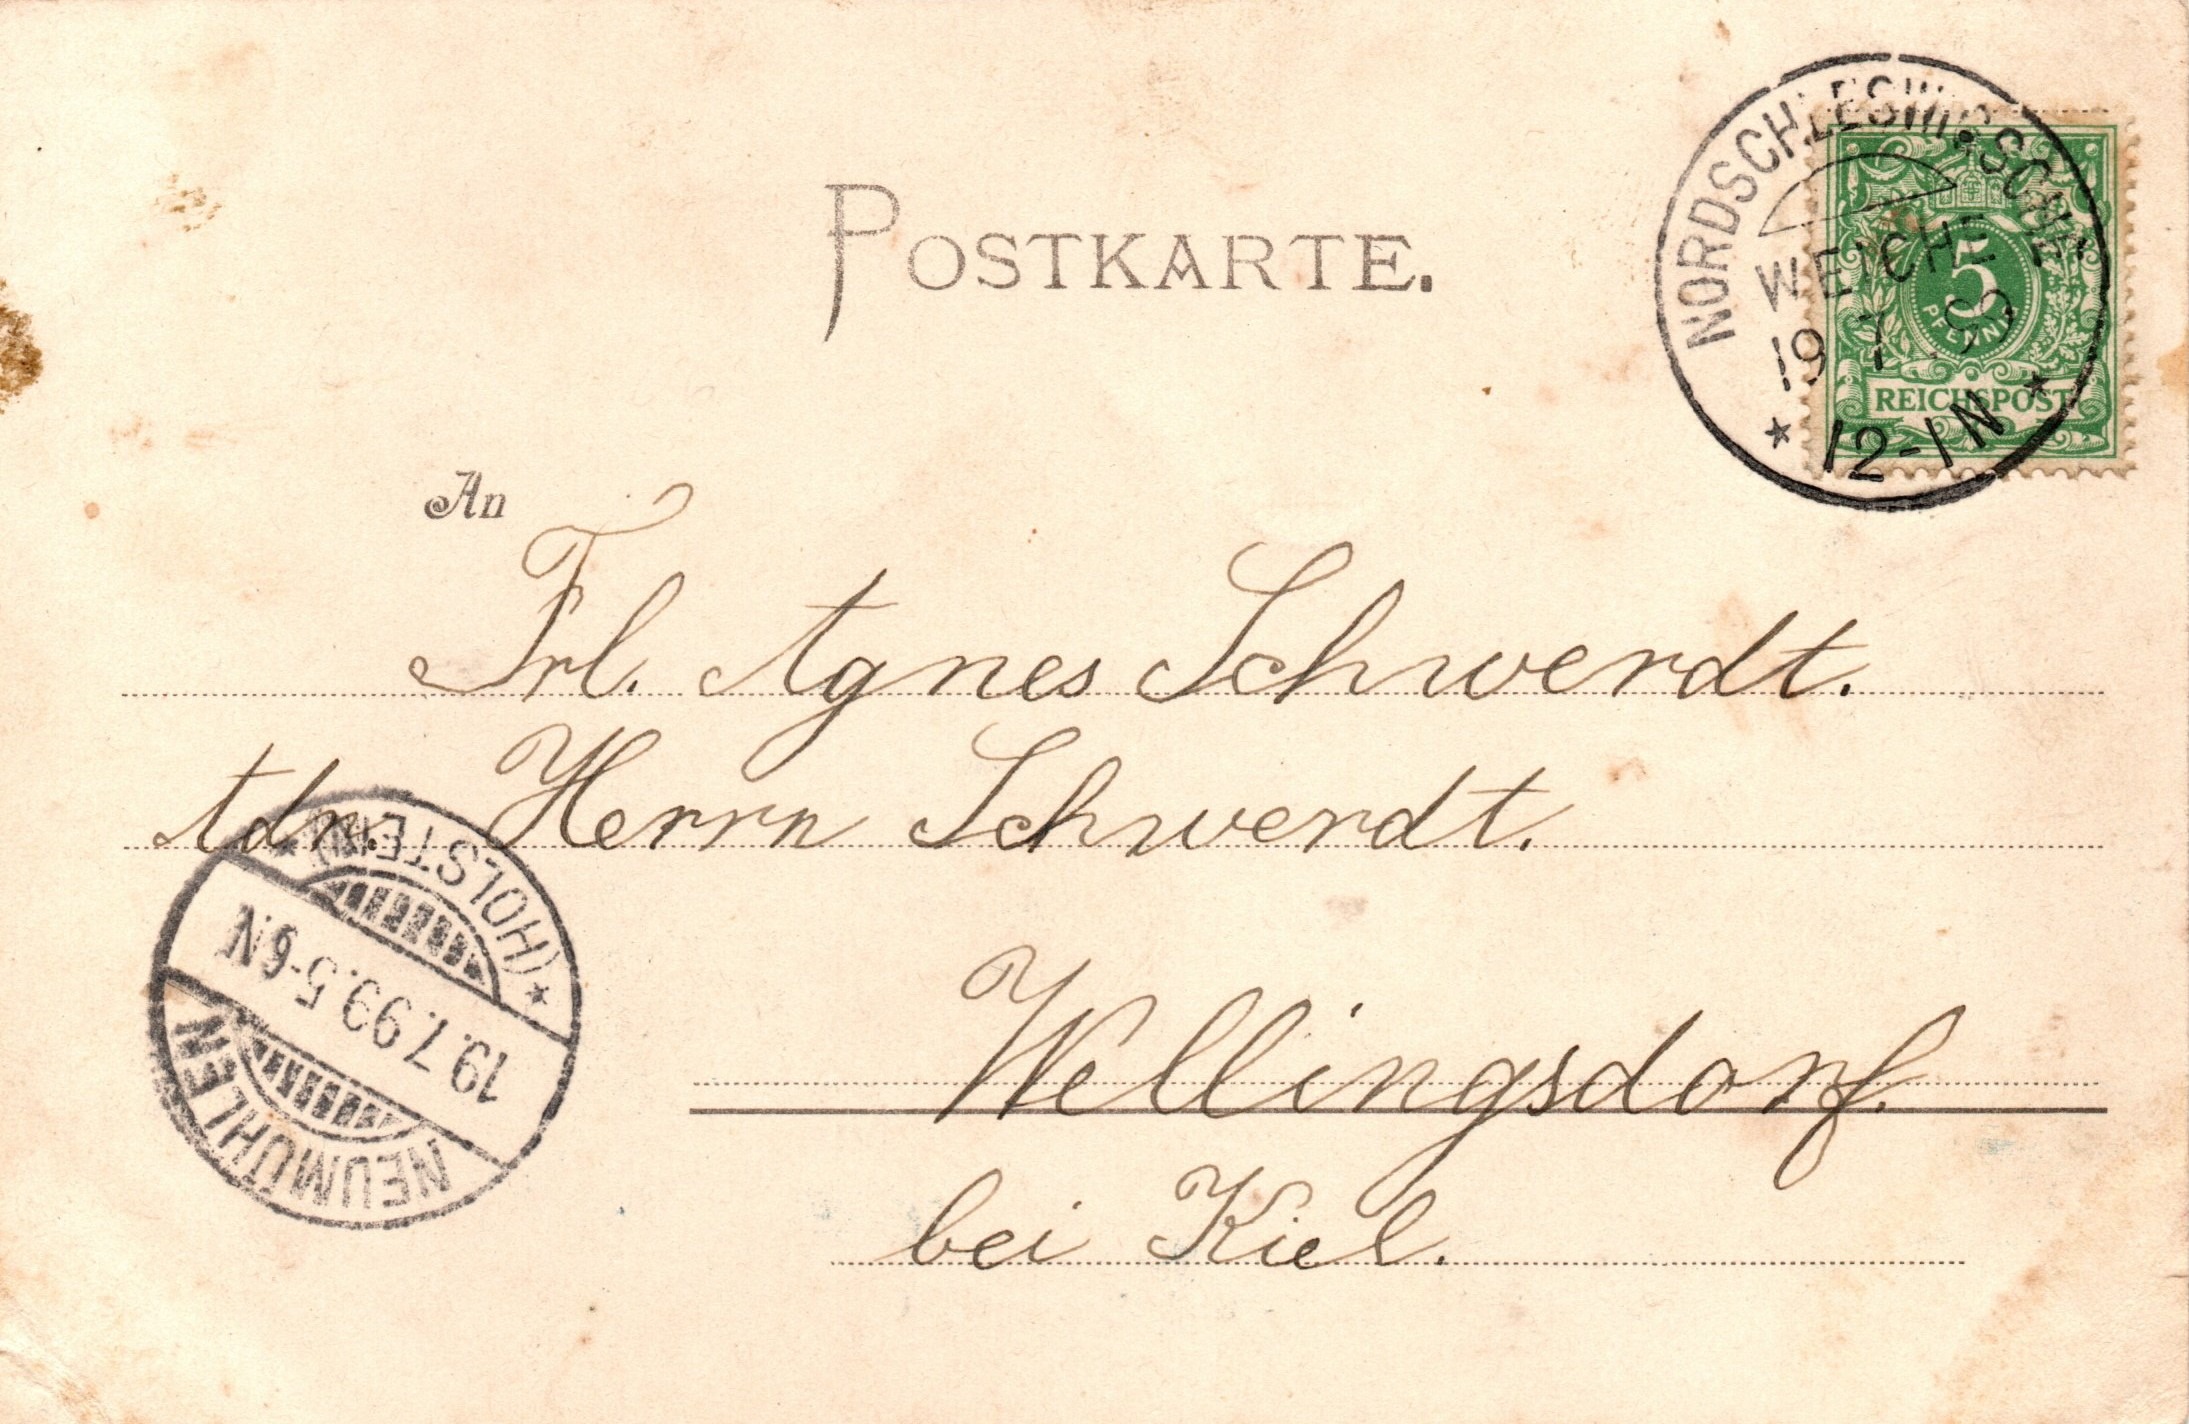 POSTKARTE.
NORDSCHLESWIGSCHE
WEICHE
19 7 99
* 12-1N *
5
PFENNIG
REICHSPOST
An
Frl. Agnes Schwerdt.
Adr. Herrn Schwerdt.
Wellingsdorf.
bei Kiel.
NEUMÜHLEN
19.7.99.5-6N
* (HOLSTEIN) *